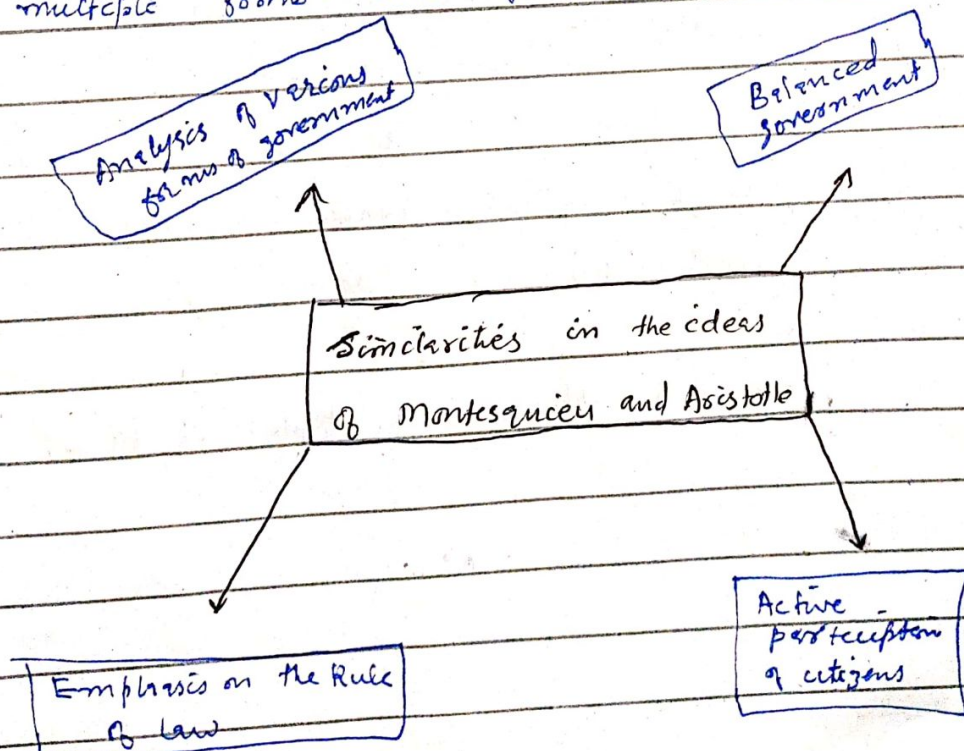 multiple forms
Analysis of various
forms of government
Balanced
government
Similarities in the ideas
of Montesquieu and Aristotle
Emphasis on the Rule
of law
Active
participation
of citizens